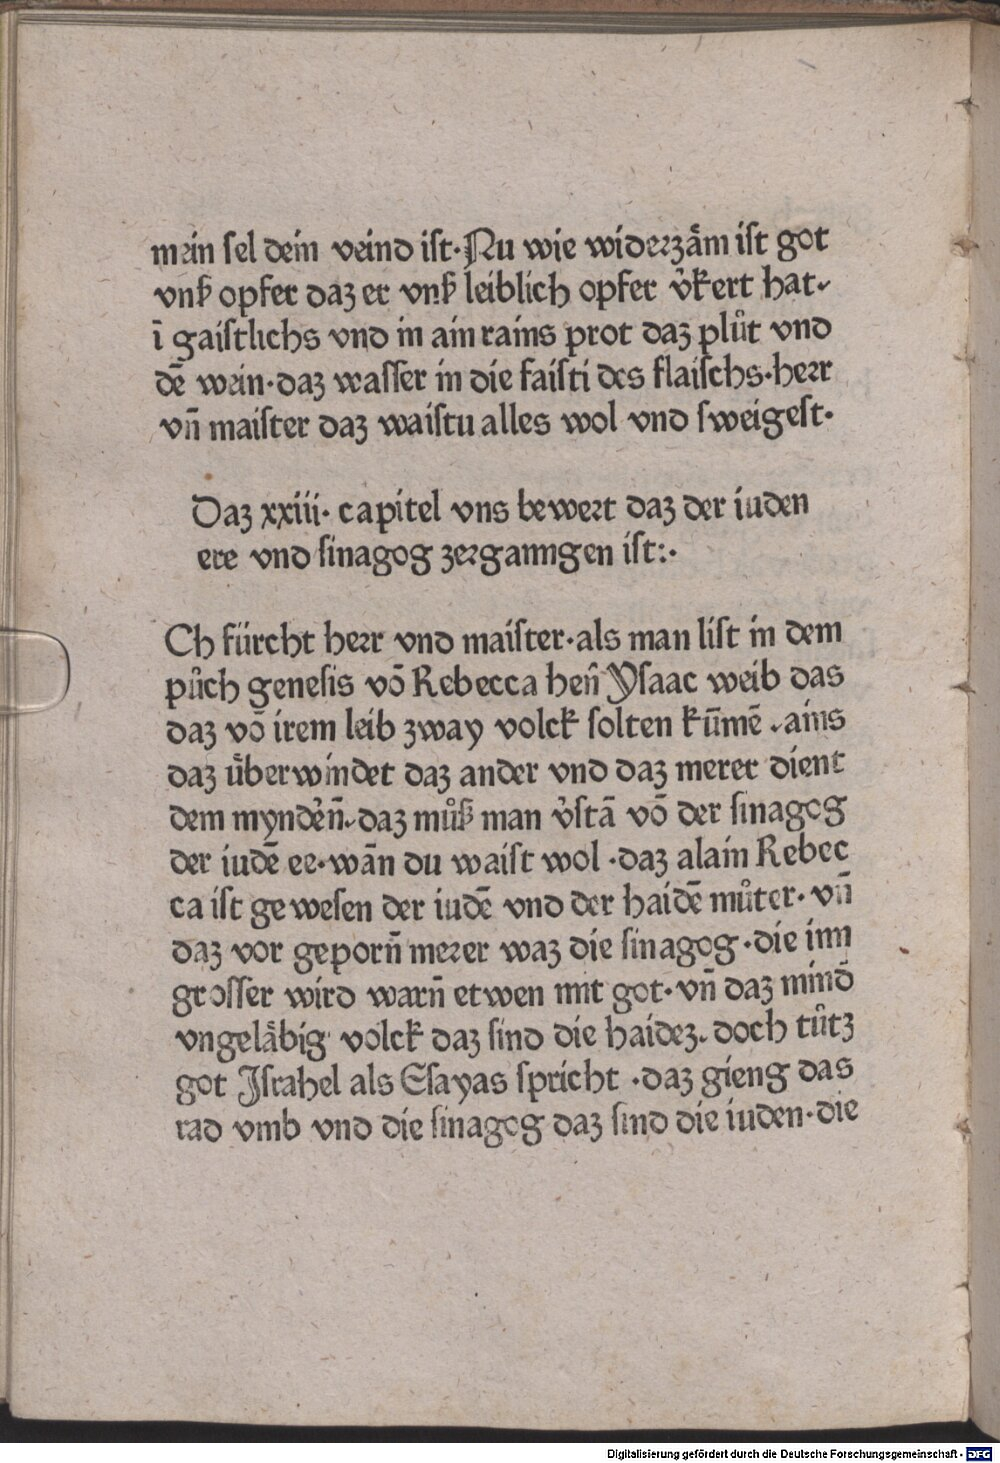 mein sel dein veind ist·Nu wie widerzåm ist got
vnß opfer daz er vnß leiblich opfer v̉kert hat·
ī gaistlichs vnd in ain rains prot daz plůt vnd
dē wein·daz wasser in die faisti des flaischs·herr
vn̄ maister daz waistu alles wol vnd sweigest·
Daz xxiii· capitel vns bewert daz der iuden
ere vnd sinagog zerganngen ist:·
Ch fürcht herr vnd maister·als man list in dem
půch genesis vō Rebecca hern̄ Ysaac weib das
daz vō irem leib zway volck solten kūmē·ains
daz ůberwindet daz ander vnd daz merer dient
dem myndẻn̄·daz můß man v̉stā vō der sinagog
der iudē ee·wān du waist wol·daz alain Rebec
ca ist gewesen der iudē vnd der haidē můter·vn̄
daz vor geporn̄ merer waz die sinagog·die inn
grosser wird warn̄ etwen mit got·vn̄ daz mind̄
vngeläbig volck daz sind die haidez·doch tůtz
got Israhel als Esayas spricht·daz gieng das
rad vmb vnd die sinagog daz sind die iuden·die
Digitalisierung gefördert durch die Deutsche Forschungsgemeinschaft - DFG